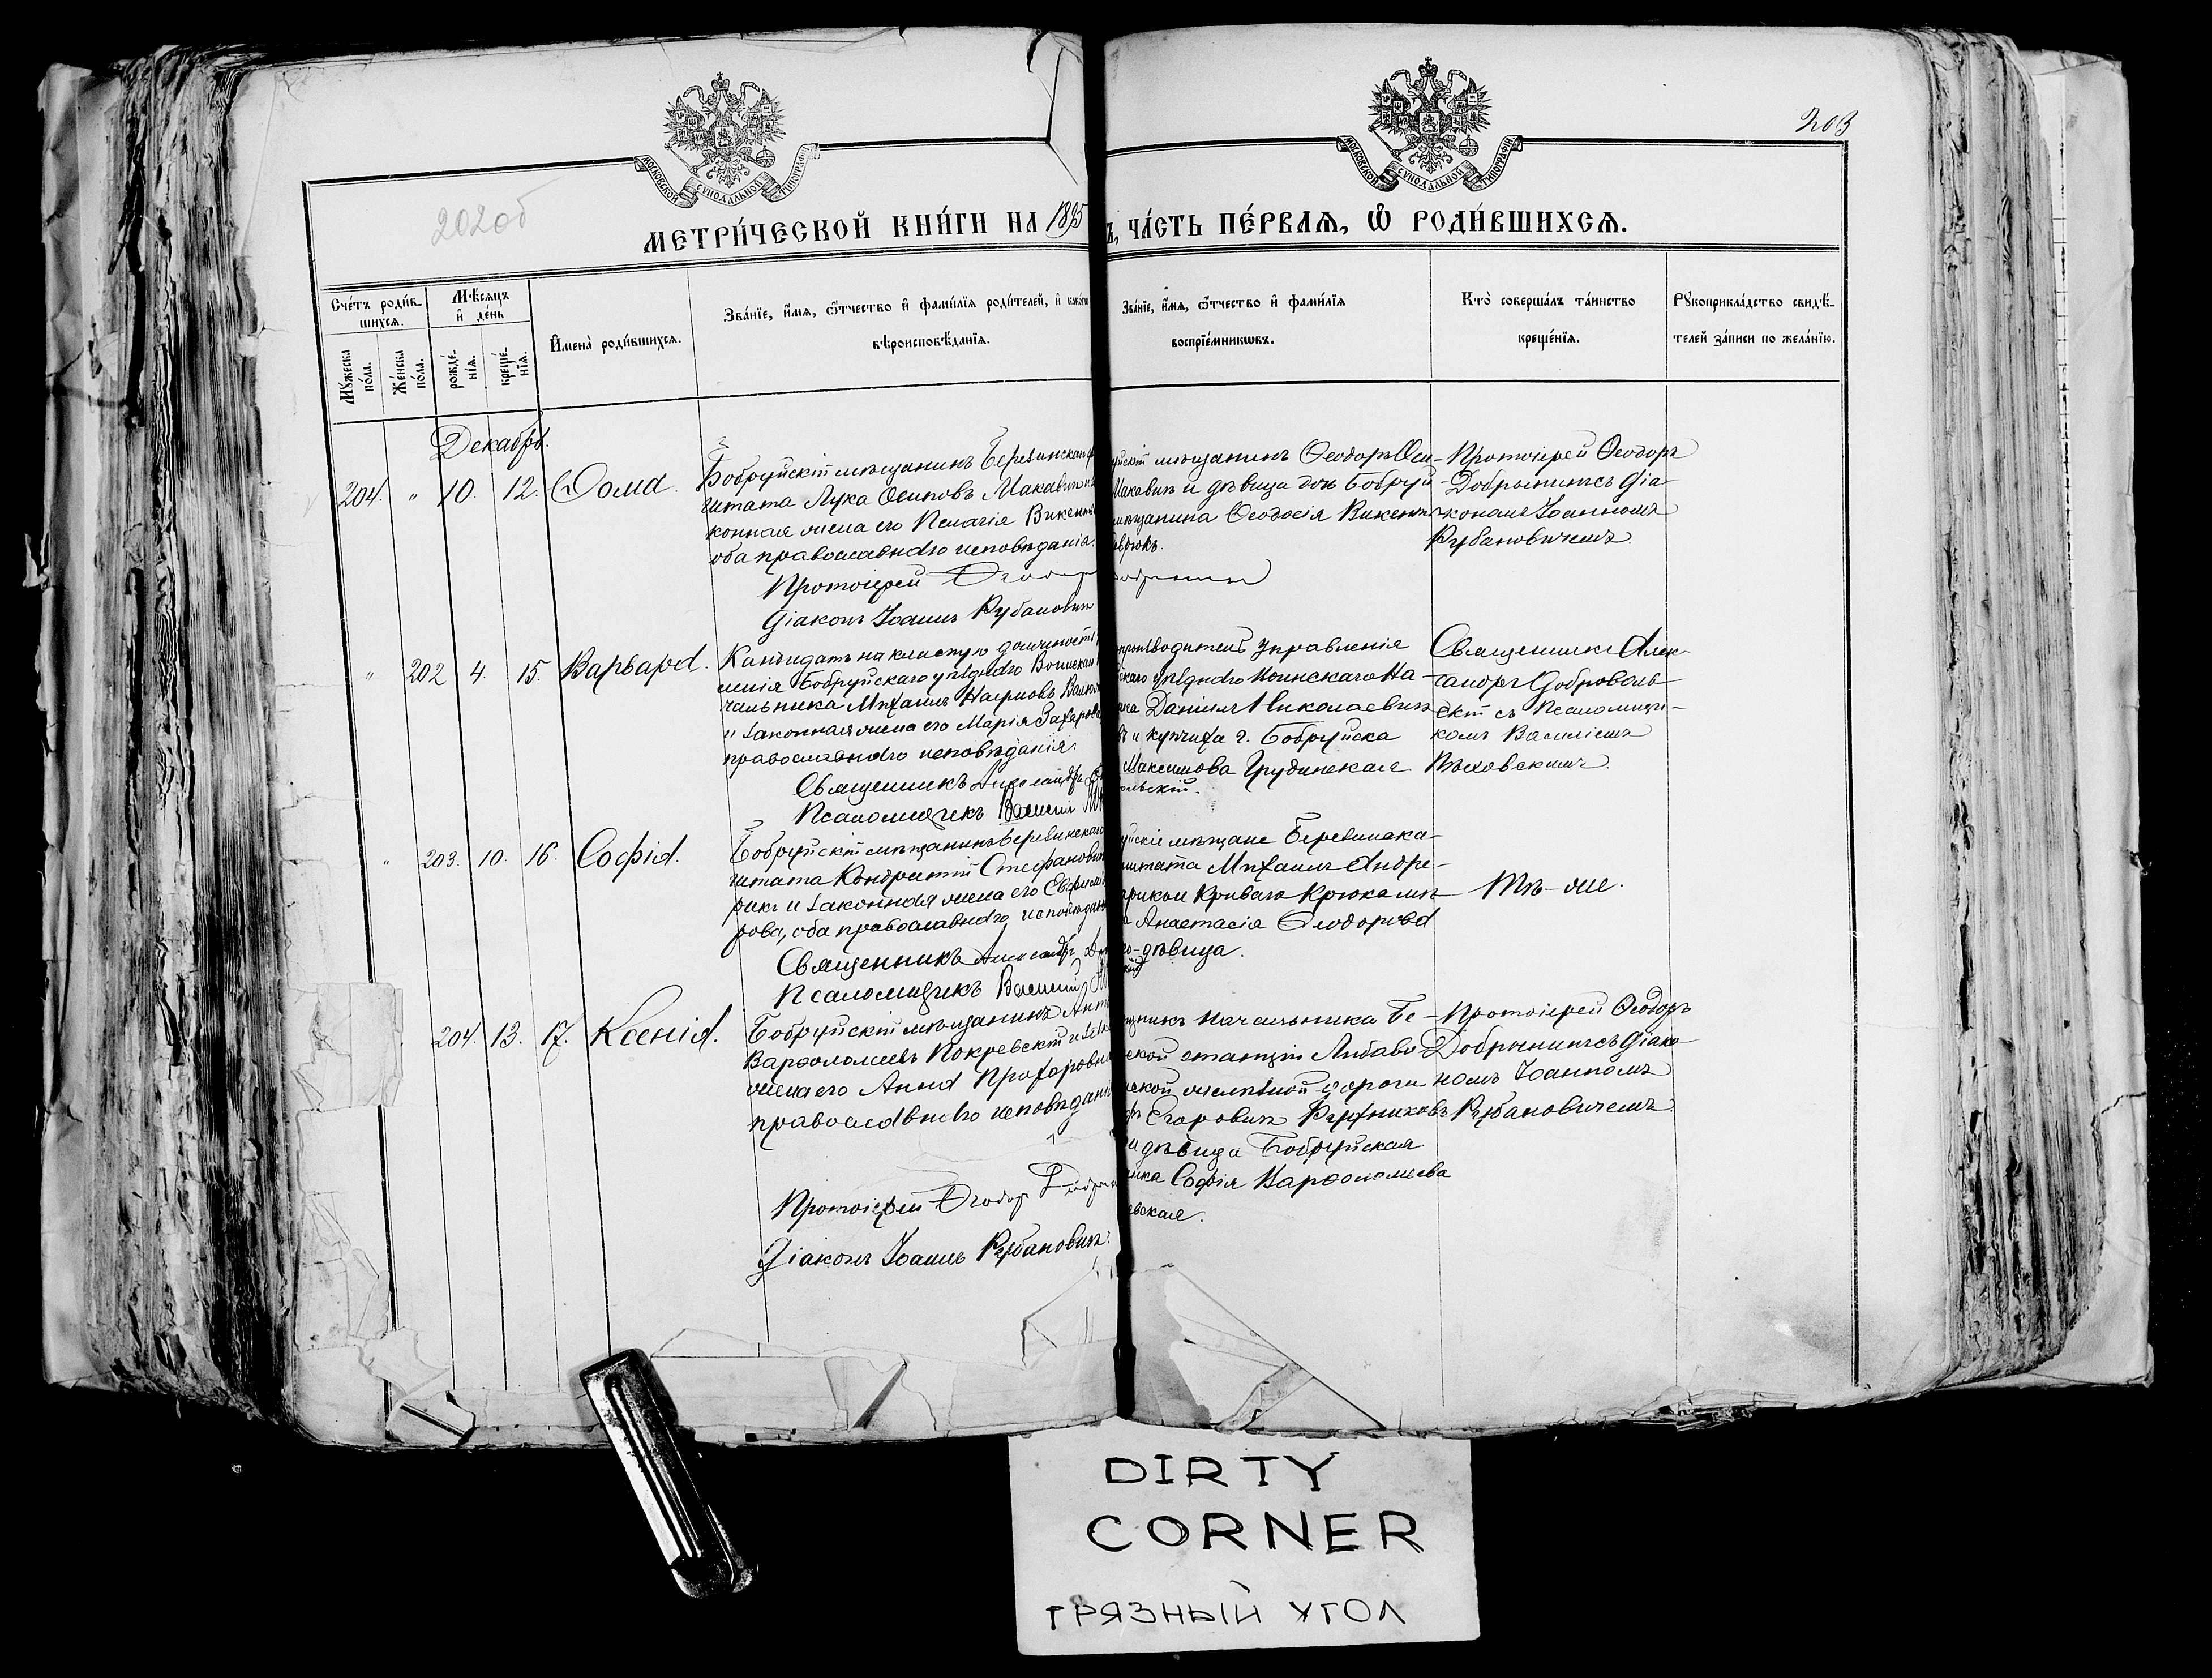 203
202об
МЕТРИ́ЧЕСКОЙ КНИ́ГИ НА 1895
Ъ, ЧА́СТЬ ПЕ́РВАЯ, Ѡ РОДИ́ВШИХСЯ.
МОСКОВСКОЙ СѴНОДАЛЬНОЙ ТИПОГРАФІИ
МОСКОВСКОЙ СѴНОДАЛЬНОЙ ТИПОГРАФІИ
Сче́тъ роди́в-
шихся.
Му́жеска по́ла.
Же́нска по́ла.
Мѣ́сяцъ и҆ де́нь
рожде́-
нїя.
креще́-
нїя.
И҆мена̀ роди́вшихся.
Зва́нїе, и҆́мя, ѻ҆́тчество и҆ фами́лїя роди́телей, и҆
вѣроисповѣ́данїя.
Зва́нїе, и҆́мя, ѻ҆́тчество и҆ фами́лїя
воспрїе́мникѡвъ.
Кто̀ соверша́лъ та́инство
креще́нїя.
Рꙋкоприкла́дство свидѣ́-
телей за́писи по жела́нїю.
Декабрь.
204. " 10. 12. Ѳома.
Бобруйскій мѣщанинъ Березинскаго
штата Лука Осиповъ Макавик
конная жена его Пелагія Викент
оба православнаго исповѣданія.
Протоіерей Ѳеодор
Діаконъ Іоаннъ Рубанович
уйскій мѣщанинъ Ѳеодоръ Оси-
Макавик и дѣвица дочь Бобруй
мѣщанина Ѳеодосія Викент
Протоіерей Ѳеодоръ
Добрынинъ съ Діа-
кономъ Іоанномъ
Рубановичемъ.
" 202 4. 15. Варвара.
Кандидатъ на классную должность
ленія Бобруйскаго уѣзднаго Воинскаго
чальника Михаилъ Наумовъ
и законная жена его Марія Захаров
православнаго исповѣданія.
Священникъ Александр
Псаломщикъ Василий
производитель Управленія
скаго уѣзднаго Воинскаго На-
Даніилъ Николаевич
и купчиха г. Бобруйска
Максимова Грудинская
ольскій.
Священникъ Алек-
сандръ Доброволь-
скій съ Псаломщи-
комъ Василіемъ
Мѣховскимъ.
" 203. 10. 16. Софія.
Бобруйскій мѣщанинъ Березинскаго
штата Кондратій Стефанович
рик и законная жена его Евфимі
рова, оба православнаго исповѣдан
Священникъ Александр
Псаломщикъ Василий
уйскіе мѣщане Березинска-
штата Михаилъ Андре-
Криваго Крюка
Анастасія Ѳеодорова
дѣвица.
Тѣ-же.
204. 13. 17. Ксенія.
Бобруйскій мѣщанинъ Ант
Варѳоломеевъ Покревскій и зак
жена его Анна Прохоровна
православнаго исповѣдан
Протоіерей Ѳеодор
Діаконъ Іоаннъ Рубанович.
щникъ Начальника Бе-
ской станціи Либаво
ской желѣзной дороги
Егорович Рубниковъ
и дѣвица Бобруйская
Софія Варѳоломеева
евская.
Протоіерей Ѳеодоръ
Добрынинъ съ Діако-
номъ Іоанномъ
Рубановичемъ.
DIRTY
CORNER
ГРЯЗНЫЙ УГОЛ